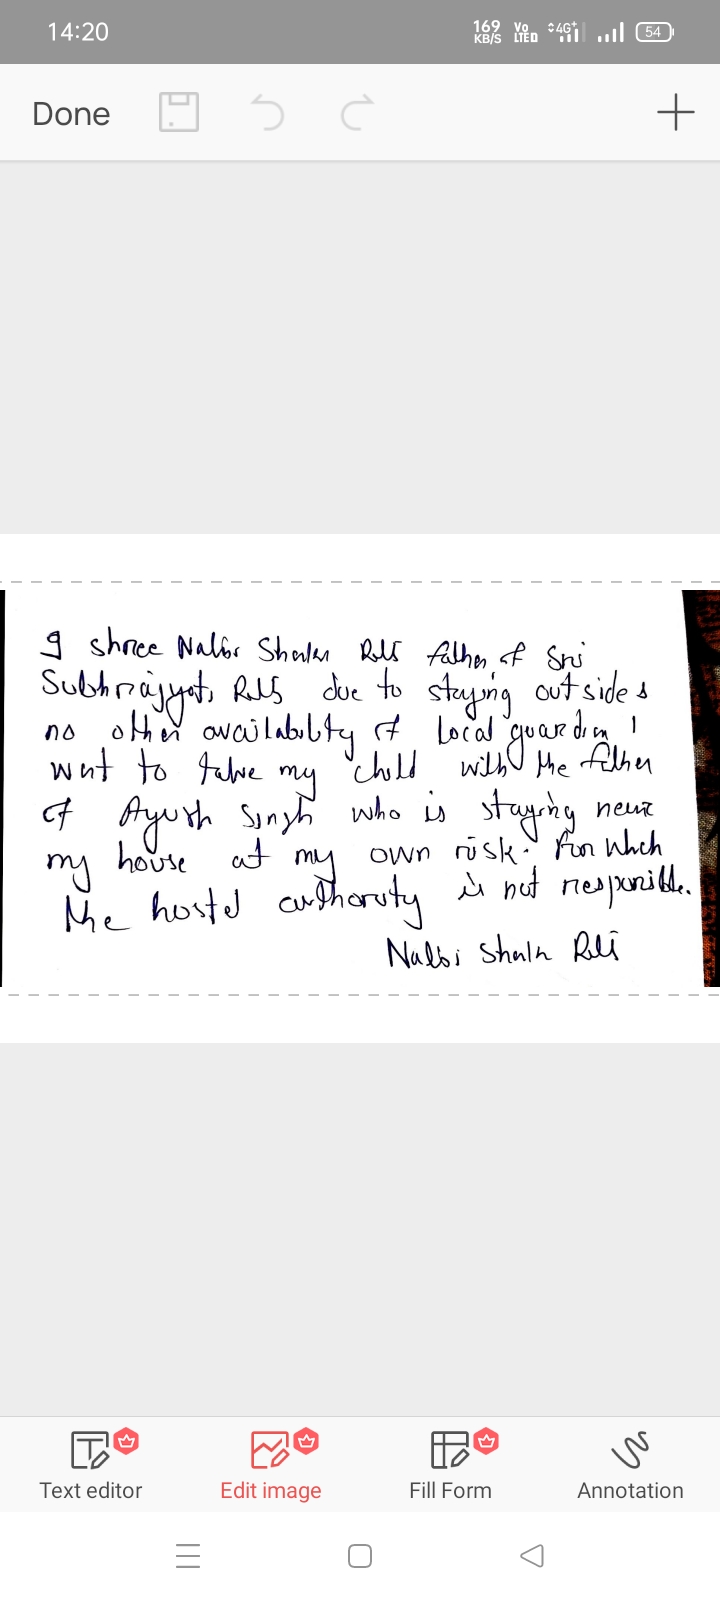 14:20
169 KB/S Vo LTED 4G+ 54
Done
I shree Nalbi Shalen Rali father of Sri
Subhrajyoti Rali due to staying outside &
no other availability of Local guardian I
wnt to take my child with the father
of Ayush Singh who is staying near
my house at my own risk. For which
the hostel authority is not responsible.
Nalbi Shalen Rali
Text editor
Edit image
Fill Form
Annotation